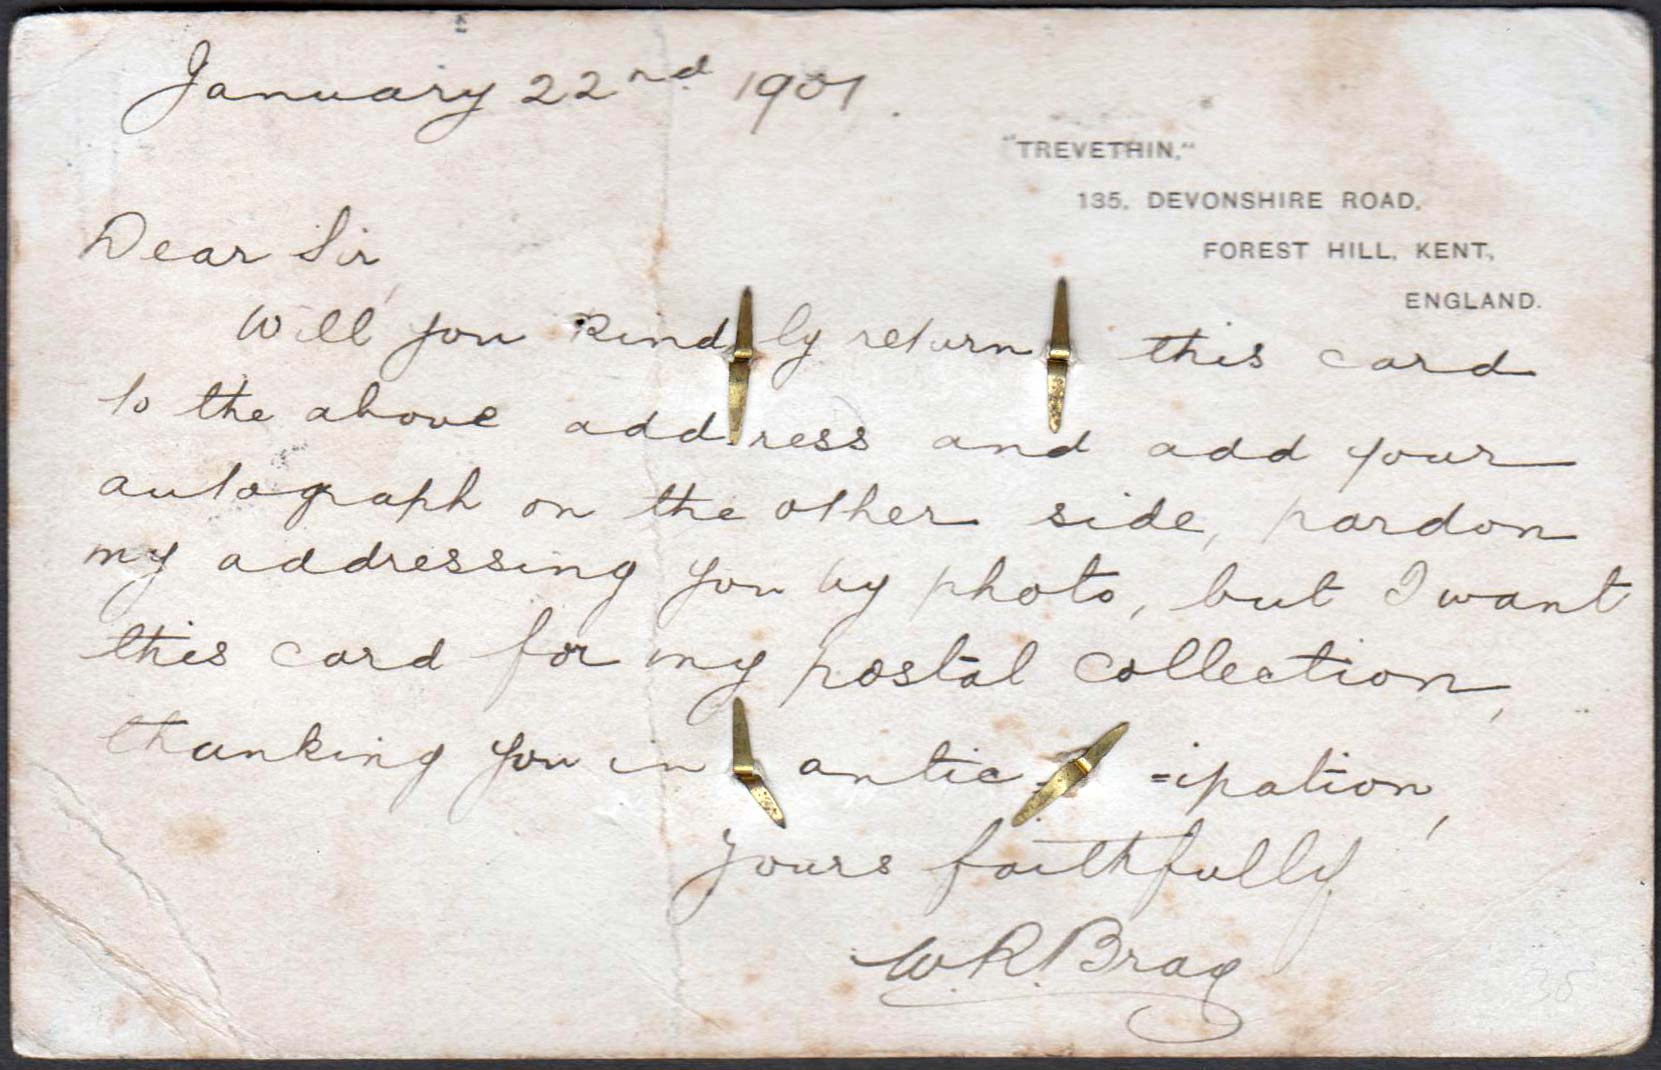 January 22nd 1901.
"TREVETHIN,"
135, DEVONSHIRE ROAD,
FOREST HILL, KENT,
ENGLAND.
Dear Sir,
Will you kindly return this card
to the above address and add your
autograph on the other side, pardon
my addressing you by photo, but I want
this card for my postal collection,
thanking you in antic=ipation,
Yours faithfully
W. R. Bray